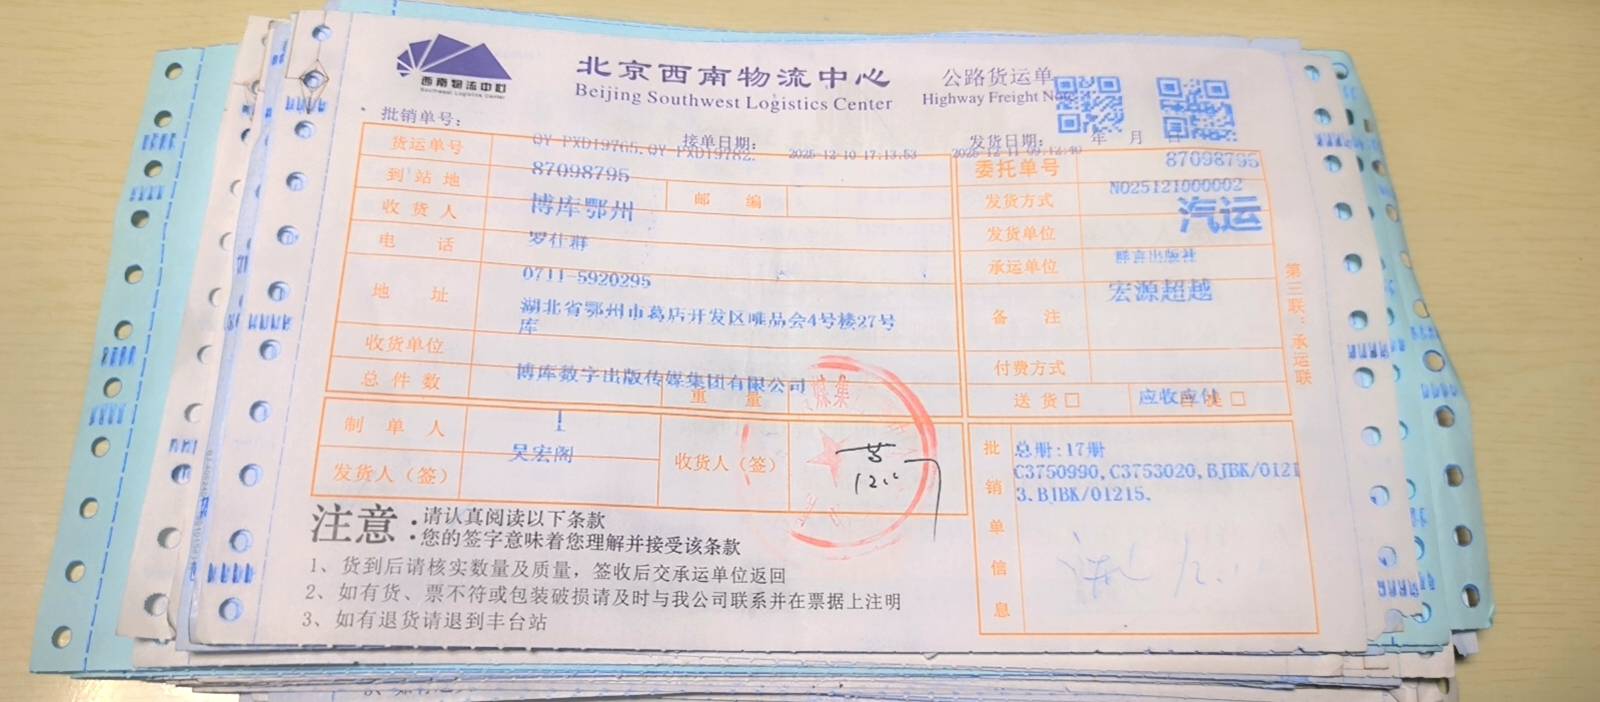 西南物流中心
Southwest Logistics Center
北京西南物流中心
Beijing Southwest Logistics Center
公路货运单
Highway Freight
批销单号：
QY-PXD19765,QY-PXD19782.
接单日期：
2025-12-10 17:13:53
发货日期： 年 月 日
2025-12-11 09:12:40
货运单号
87098795
到站地
博库鄂州
邮 编
收货人
罗仕群
电 话
0711-5920295
地 址
湖北省鄂州市葛店开发区唯品会4号楼27号
库
收货单位
博库数字出版传媒集团有限公司
总件数
1
重 量
制单人
吴宏阁
发货人（签）
收货人（签）
委托单号
87098795
N025121000002
发货方式
汽运
发货单位
群言出版社
承运单位
宏源超越
备 注
付费方式
应收应付
送 货 □
自 提 □
批销单信息
总册:17册
C3750990,C3753020,BJBK/0121
3.BJBK/01215.
第三联：承运联
媒集
注意：
请认真阅读以下条款
您的签字意味着您理解并接受该条款
1、货到后请核实数量及质量，签收后交承运单位返回
2、如有货、票不符或包装破损请及时与我公司联系并在票据上注明
3、如有退货请退到丰台站